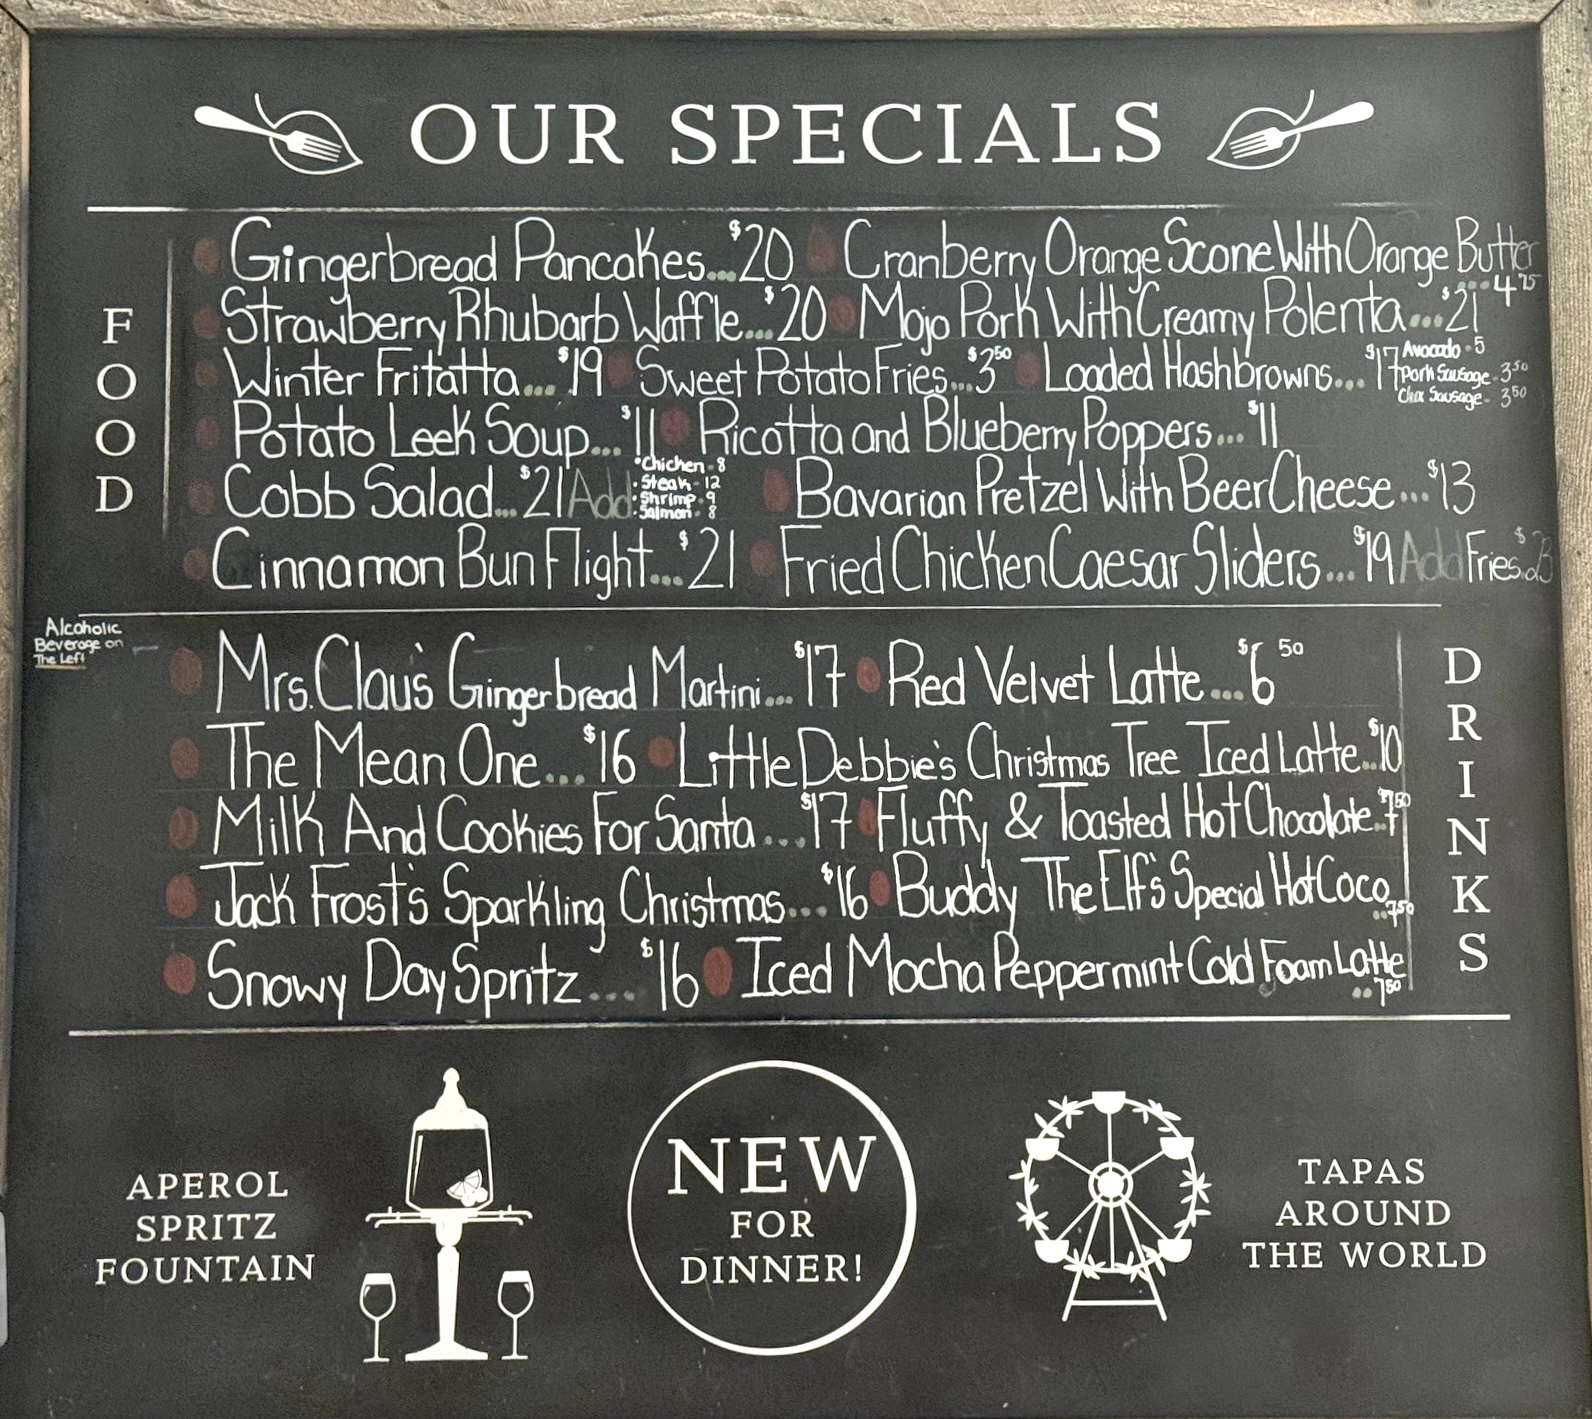 OUR SPECIALS
FOOD
Gingerbread Pancakes...$20 Cranberry Orange Scone With Orange Butter
...4.75
Strawberry Rhubarb Waffle...$20 Mojo Pork With Creamy Polenta...$21
Winter Fritatta...$19 Sweet Potato Fries...$3 50 Loaded Hashbrowns...$17
Avocado - 5
Pork Sausage - 3 50
Chix Sausage - 3 50
Potato Leek Soup...$11 Ricotta and Blueberry Poppers...$11
Cobb Salad...$21 Add
Chicken - 8
Steak - 12
Shrimp - 9
Salmon - 8
Bavarian Pretzel With Beer Cheese...$13
Cinnamon Bun Flight...$21 Fried Chicken Caesar Sliders...$19 Add Fries
Alcoholic
Beverage on
The Left
DRINKS
Mrs. Claus Gingerbread Martini...$17 Red Velvet Latte...$6 50
The Mean One...$16 Little Debbie's Christmas Tree Iced Latte..$10
Milk And Cookies For Santa...$17 Fluffy & Toasted Hot Chocolate..$7 50
Jack Frost's Sparkling Christmas...$16 Buddy The Elf's Special Hot Coco
..7 50
Snowy Day Spritz...$16 Iced Mocha Peppermint Cold Foam Latte
..7 50
APEROL
SPRITZ
FOUNTAIN
NEW
FOR
DINNER!
TAPAS
AROUND
THE WORLD